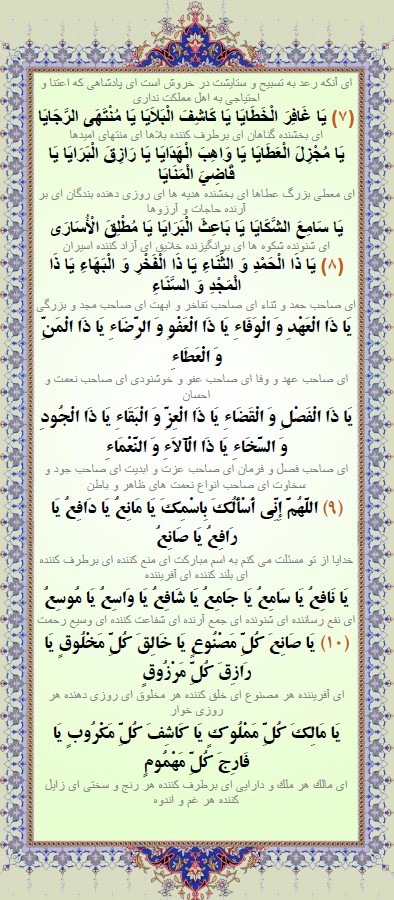 ای آنکه رعد به تسبیح و ستایشت در خروش است ای پادشاهی که اعتنا و
احتیاجی به اهل مملکت نداری
(۷) يَا غَافِرَ الْخَطَايَا يَا كَاشِفَ الْبَلايَا يَا مُنْتَهَى الرَّجَايَا
ای بخشنده گناهان ای برطرف کننده بلاها ای منتهای امیدها
يَا مُجْزِلَ الْعَطَايَا يَا وَاهِبَ الْهَدَايَا يَا رَازِقَ الْبَرَايَا يَا
قَاضِيَ الْمَنَايَا
ای معطی بزرگ عطاها ای بخشنده هدیه ها ای روزی دهنده بندگان ای بر
آرنده حاجات و آرزوها
يَا سَامِعَ الشَّكَايَا يَا بَاعِثَ الْبَرَايَا يَا مُطْلِقَ الْأُسَارَى
ای شنونده شکوه ها ای برانگیزنده خلایق ای آزاد کننده اسیران
(۸) يَا ذَا الْحَمْدِ وَ الثَّنَاءِ يَا ذَا الْفَخْرِ وَ الْبَهَاءِ يَا ذَا
الْمَجْدِ وَ السَّنَاءِ
ای صاحب حمد و ثناء ای صاحب تفاخر و ابهت ای صاحب مجد و بزرگی
يَا ذَا الْعَهْدِ وَ الْوَفَاءِ يَا ذَا الْعَفْوِ وَ الرِّضَاءِ يَا ذَا الْمَنِّ
وَ الْعَطَاءِ
ای صاحب عهد و وفا ای صاحب عفو و خوشنودی ای صاحب نعمت و
احسان
يَا ذَا الْفَصْلِ وَ الْقَضَاءِ يَا ذَا الْعِزِّ وَ الْبَقَاءِ يَا ذَا الْجُودِ
وَ السَّخَاءِ يَا ذَا الْآلاءِ وَ النَّعْمَاءِ
ای صاحب فصل و فرمان ای صاحب عزت و ابدیت ای صاحب جود و
سخاوت ای صاحب انواع نعمت های ظاهر و باطن
(۹) اللَّهُمَّ إِنِّي أَسْأَلُكَ بِاسْمِكَ يَا مَانِعُ يَا دَافِعُ يَا
رَافِعُ يَا صَانِعُ
خدایا از تو مسئلت می کنم به اسم مبارکت ای منع کننده ای برطرف کننده
ای بلند کننده ای آفریننده
يَا نَافِعُ يَا سَامِعُ يَا جَامِعُ يَا شَافِعُ يَا وَاسِعُ يَا مُوسِعُ
ای نفع رساننده ای شنونده ای جمع آرنده ای شفاعت کننده ای وسیع رحمت
(۱۰) يَا صَانِعَ كُلِّ مَصْنُوعٍ يَا خَالِقَ كُلِّ مَخْلُوقٍ يَا
رَازِقَ كُلِّ مَرْزُوقٍ
ای آفریننده هر مصنوع ای خلق کننده هر مخلوق ای روزی دهنده هر
روزی خوار
يَا مَالِكَ كُلِّ مَمْلُوكٍ يَا كَاشِفَ كُلِّ مَكْرُوبٍ يَا
فَارِجَ كُلِّ مَهْمُومٍ
ای مالك هر ملك و دارایی ای برطرف کننده هر رنج و سختی ای زایل
کننده هر غم و اندوه